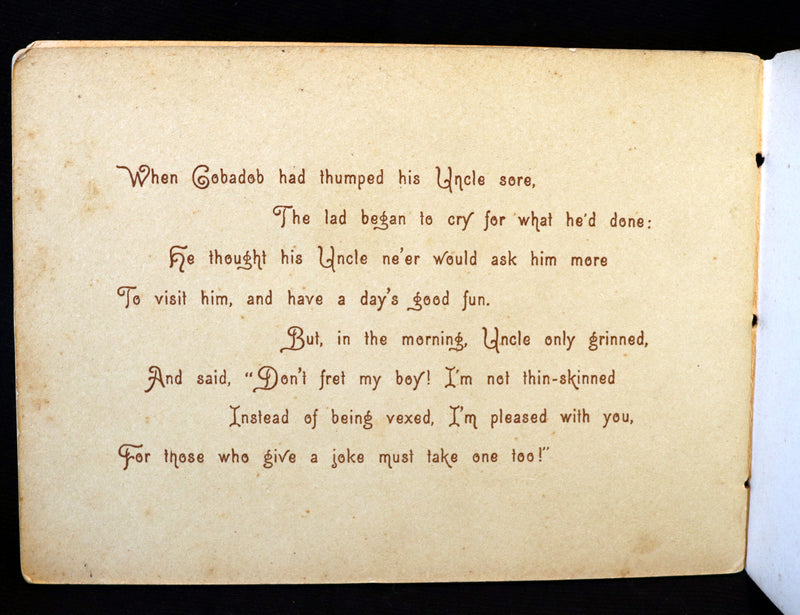 When Cobadob had thumped his Uncle sore,
The lad began to cry for what he'd done:
He thought his Uncle ne'er would ask him more
To visit him, and have a day's good fun.
But, in the morning, Uncle only grinned,
And said, "Don't fret my boy! I'm not thin-skinned
Instead of being vexed, I'm pleased with you,
For those who give a joke must take one too!"